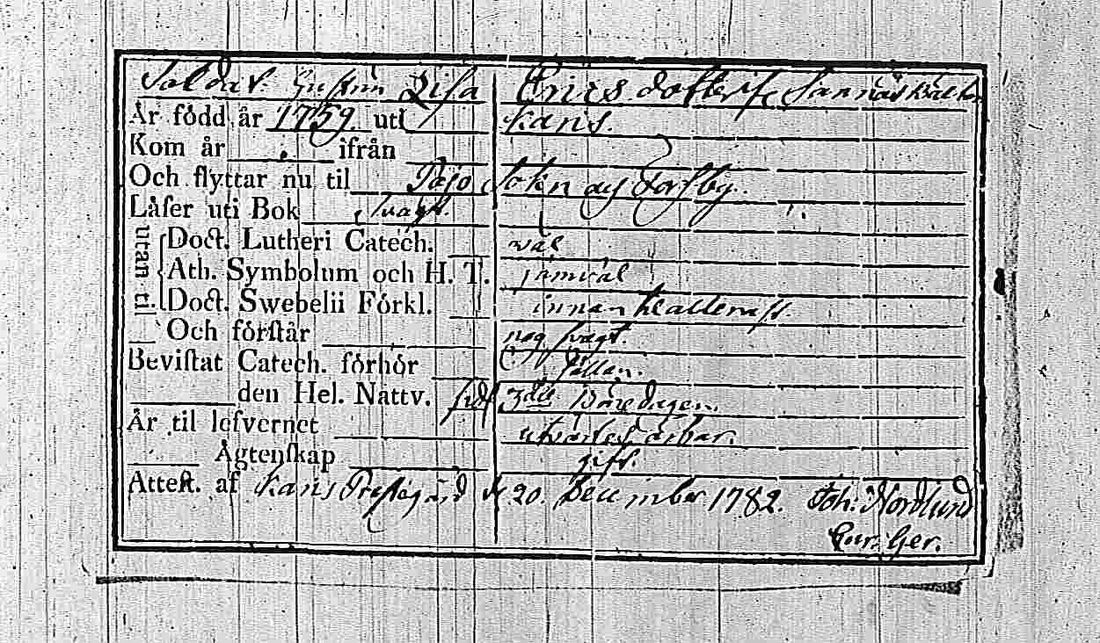 Soldat: Hustrun Lisa Ericsdotter fr Sannäs
År född år 1759. uti Karis.
Kom år ifrån
Och flyttar nu til Pojo Sokn och Forsby.
Låser uti Bok svagt.
utan til
Doct. Lutheri Catech. väl
Ath. Symbolum och H. T. jämväl
Doct. Swebelii Förkl. innan til
Och förstår nog svagt.
Bevistat Catech. förhör sällan.
den Hel. Nattv. sidst 3die Bönedagen.
År til lefvernet utvärtes ärbar.
Ägtenskap gift.
Attest. af Karis Prestegård d. 20. December 1782. Joh: Nordlund
Cur. Ger.